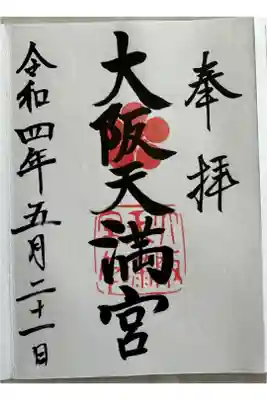 奉拝
大阪天満宮
令和四年五月二十一日